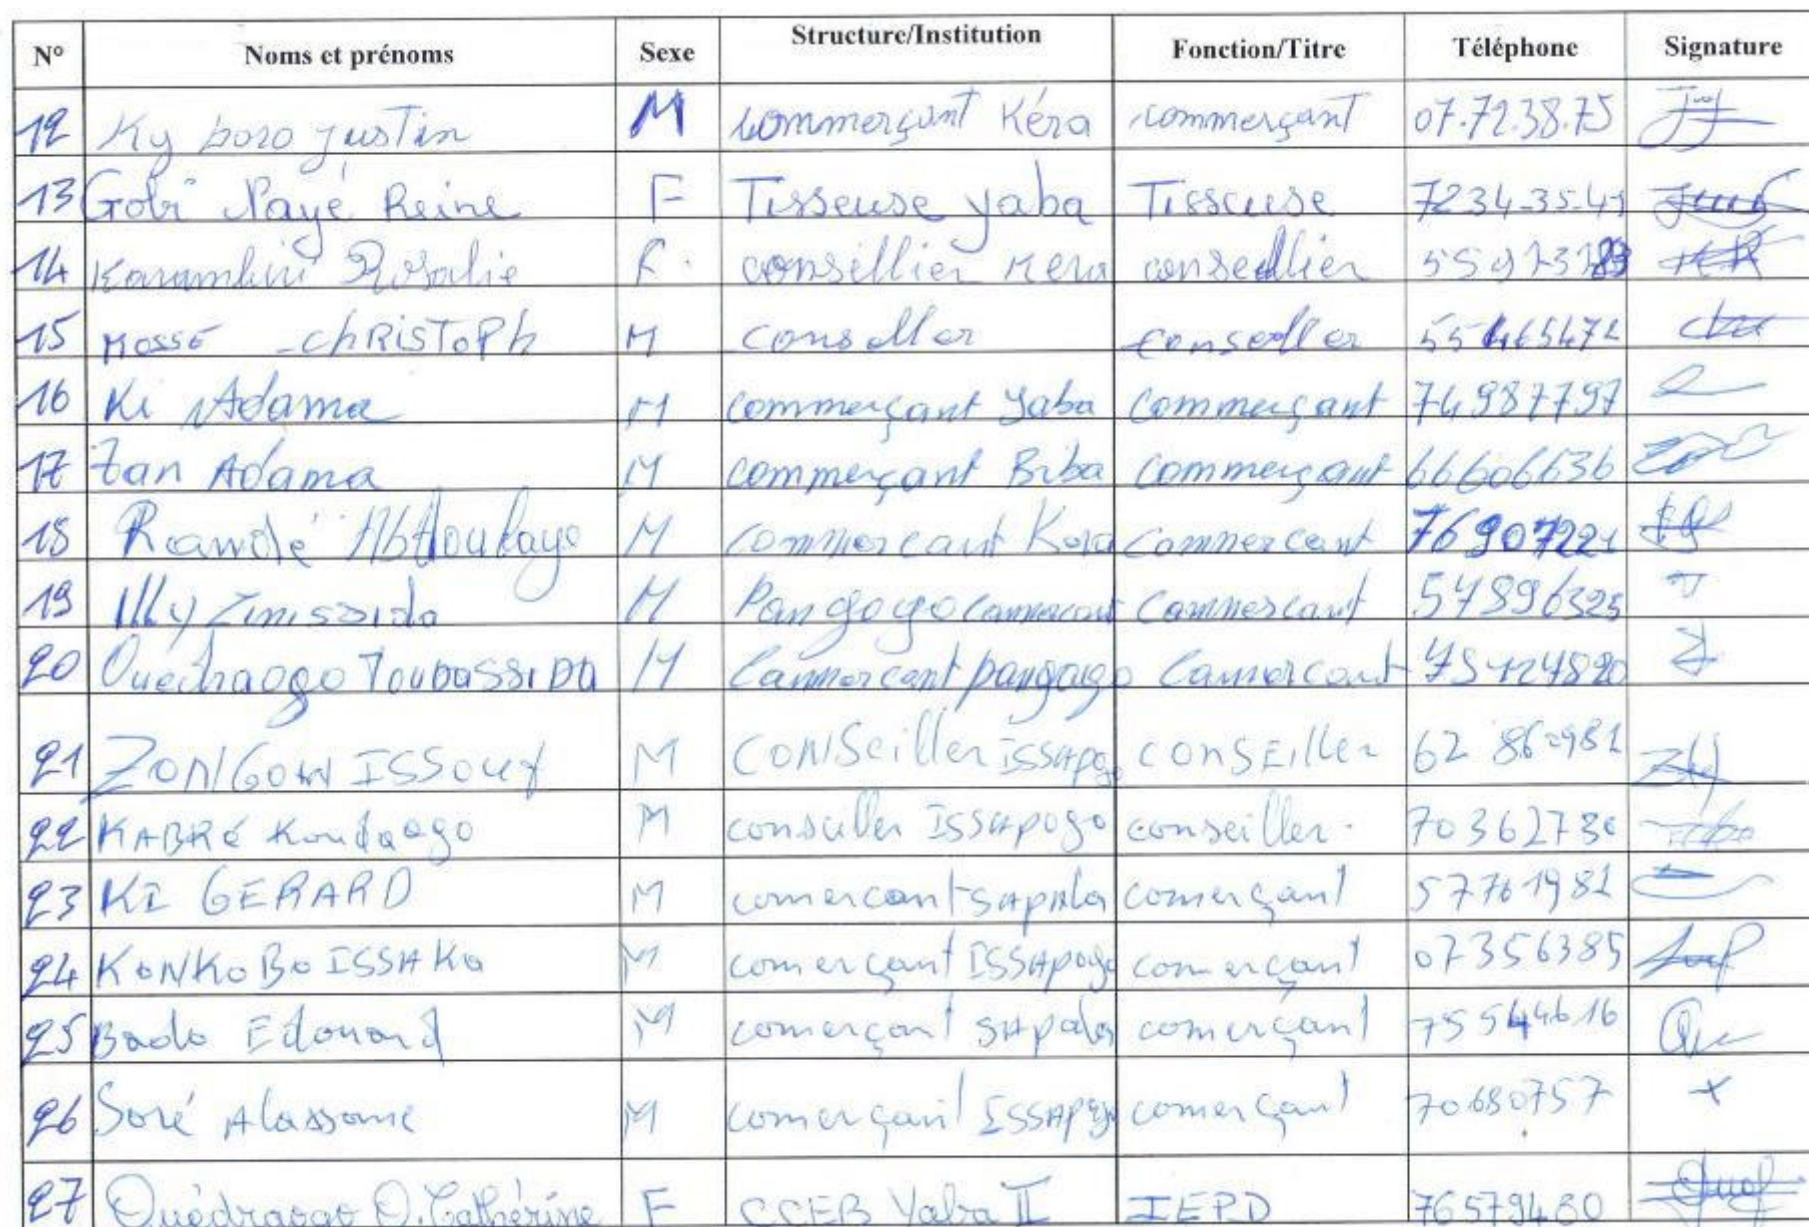 N° Noms et prénoms Sexe Structure/Institution Fonction/Titre Téléphone Signature
12 Ky boro justin M commerçant Kéra commerçant 07.72.38.75
13 Gobi Nayé Reine F Tisseuse yaba Tisseuse 7234-35-41
14 Karambiri Rosalie F. consellier Kera consedlier
15 MOSSÉ ChRISTOPh M
16 Ki Adama M commerçant Yaba Commerçant 74987797
17 Zan Adama M commerçant Biba commerçant 66606636
18 Rawdé Abdoulaye M commercant Kera Commercant 76907221
19 Illy Zinissida M Pangogo commercant Commercant 57896325
20 Ouedraogo TOUBASSIDA M Commercant pangogo Commercant
21 ZONGOW ISSOUF M CONSeiller ISSApogo CONSEiller 62 86 2981
22 KABRé Koudaogo M conseiller ISSApogo conseiller. 70362730
23 KI GERARD M comercant SApala comerçant 57761981
24 KONKOBO ISSAKa M comerçant ISSApogo comerçant 07356385
25 Bado Edouard M comerçant SApala comerçant 75544616
26 Soré Alassane M comerçant ISSApogo comerçant 70680757 x
27 Ouédraogo O. Cathérine F CCEB Yaba II IEPD 76579480